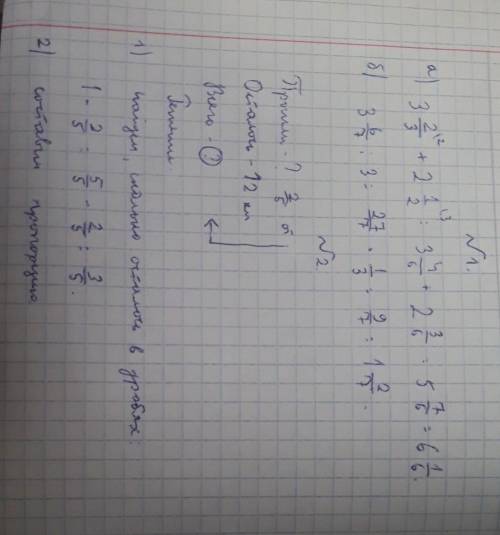 №1.
а) 3 2/3 \2 + 2 1/2 \3 = 3 4/6 + 2 3/6 = 5 7/6 = 6 1/6.
б) 3 6/7 : 3 = 27/7 · 1/3 = 9/7 = 1 2/7.
№2
Прошли - ? 2/5 от
Осталось - 12 км
Всего - ?
Решение.
1) найдем, сколько осталось в дробях:
1 - 2/5 = 5/5 - 2/5 = 3/5.
2) составим пропорцию